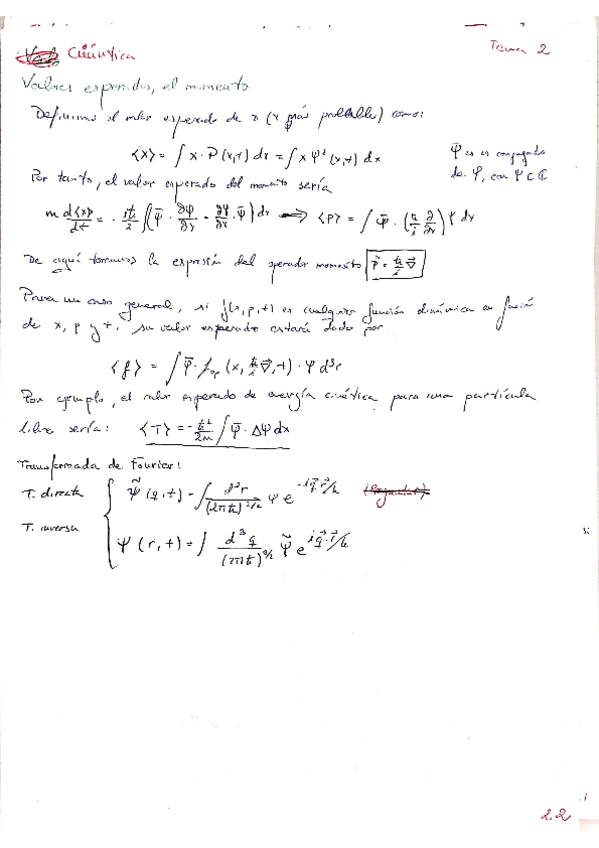 Cuántica
Tema 2
Valores esperados, el momento
Definimos el valor esperado de x (x más probable) como:
⟨x⟩ = ∫ x · P(x,t) dx = ∫ x Ψ² (x,t) dx
Ψ̄ es es conjugado
de Ψ, con Ψ ∈ ℂ
Por tanto, el valor esperado del momento sería
m d⟨x⟩/dt = - iħ/2 ∫(Ψ̄ · ∂Ψ/∂x - ∂Ψ/∂x · Ψ̄) dx ⟹ ⟨p⟩ = ∫ Ψ̄ · (ħ/i ∂/∂x) Ψ dx
De aquí tomamos la expresión del operador momento p⃗ = ħ/i ∇⃗
Para un caso general, si f(x,p,t) es cualquier función dinámica en función
de x, p y t, su valor esperado estará dado por
⟨f⟩ = ∫ Ψ̄ · f_op (x, ħ/i ∇⃗, t) · Ψ d³r
Por ejemplo, el valor esperado de energía cinética para una partícula
libre sería: ⟨T⟩ = - ħ²/2m ∫ Ψ̄ · ΔΨ dx
Transformada de Fourier:
T. directa Ψ̃ (q,t) = ∫ d³r/(2πħ)^3/2 Ψ e^-iq⃗·r⃗/ħ
T. inversa Ψ (r,t) = ∫ d³q/(2πħ)^3/2 Ψ̃ e^iq⃗·r⃗/ħ
2.2